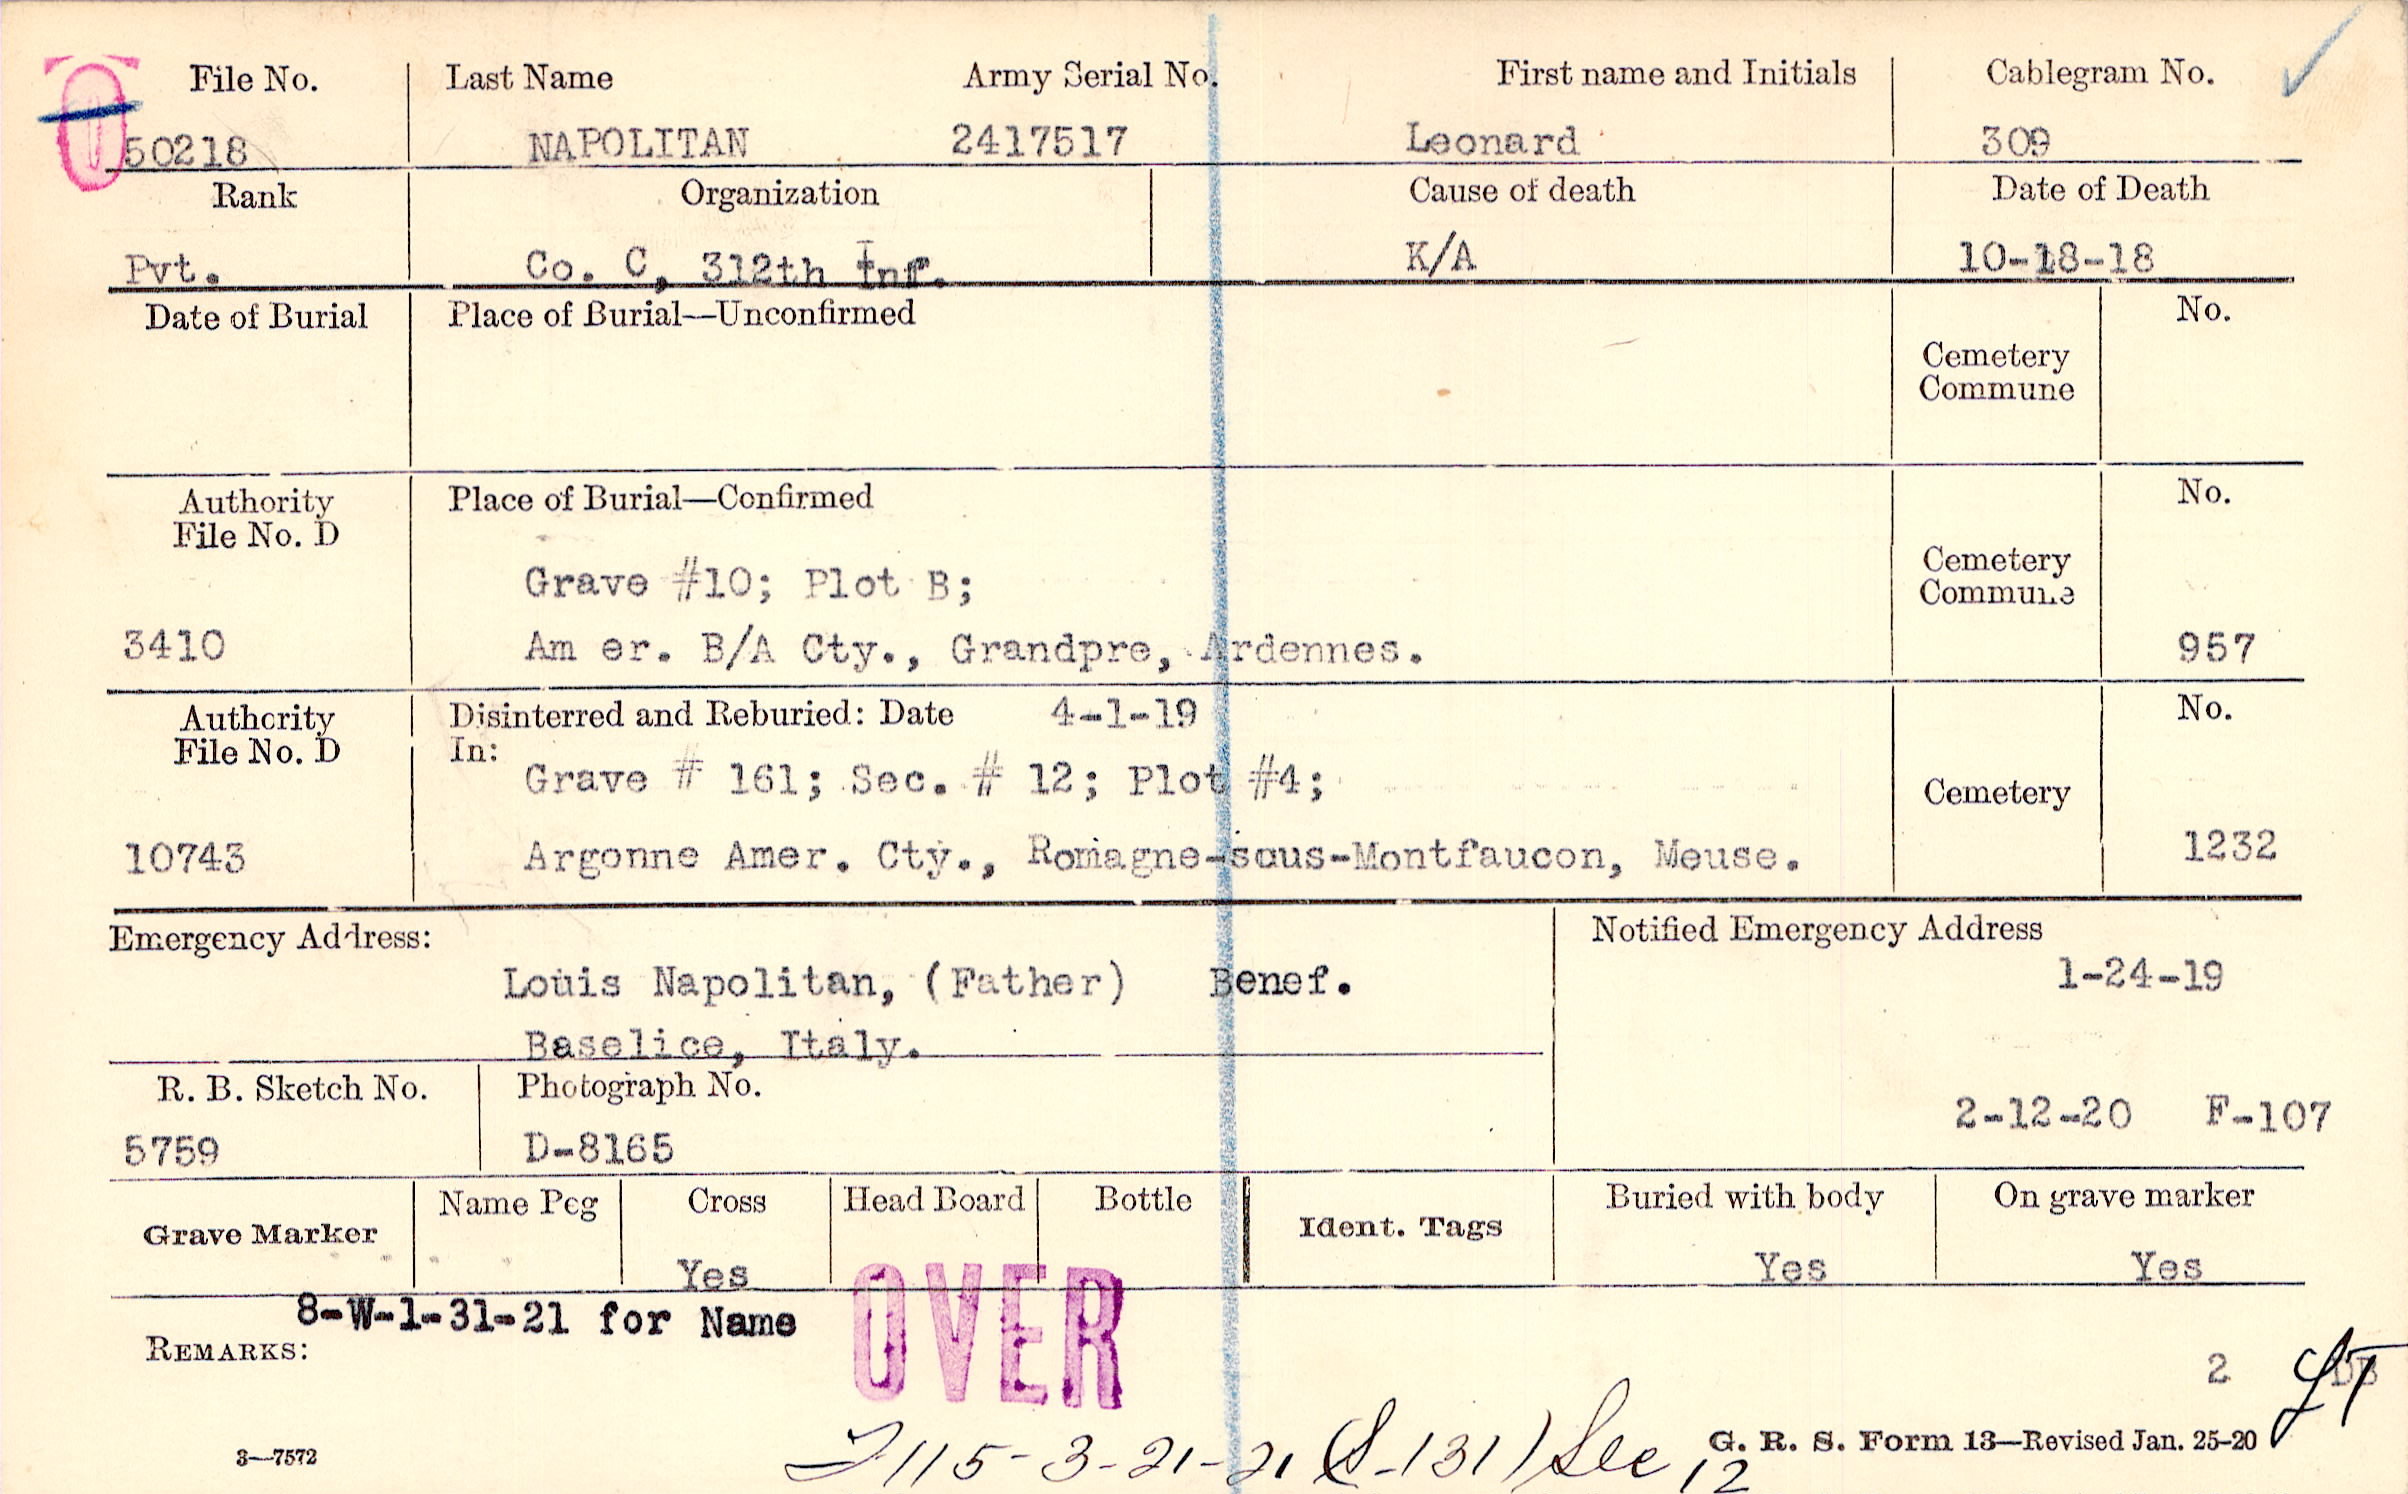 File No. Last Name Army Serial No. First name and Initials Cablegram No.
50218 NAPOLITAN 2417517 Leonard 309
Rank Organization Cause of death Date of Death
Pvt. Co. C, 312th Inf. K/A 10-18-18
Date of Burial Place of Burial—Unconfirmed No.
Cemetery
Commune
Authority Place of Burial—Confirmed No.
File No. D
Cemetery
Commune
Grave #10; Plot B;
3410 Am er. B/A Cty., Grandpre, Ardennes. 957
Authority Disinterred and Reburied: Date 4-1-19 No.
File No. D In:
Grave # 161; Sec. # 12; Plot #4;
Cemetery
10743 Argonne Amer. Cty., Romagne-sous-Montfaucon, Meuse. 1232
Emergency Address: Notified Emergency Address
Louis Napolitan, (Father) Benef. 1-24-19
Baselice, Italy.
R. B. Sketch No. Photograph No.
2-12-20 F-107
5759 D-8165
Grave Marker Name Peg Cross Head Board Bottle Ident. Tags Buried with body On grave marker
Yes Yes Yes
8-W-1-31-21 for Name
OVER
REMARKS:
2
115-3-21-21 (S-131) See 12
3—7572 G. R. S. Form 13—Revised Jan. 25-20